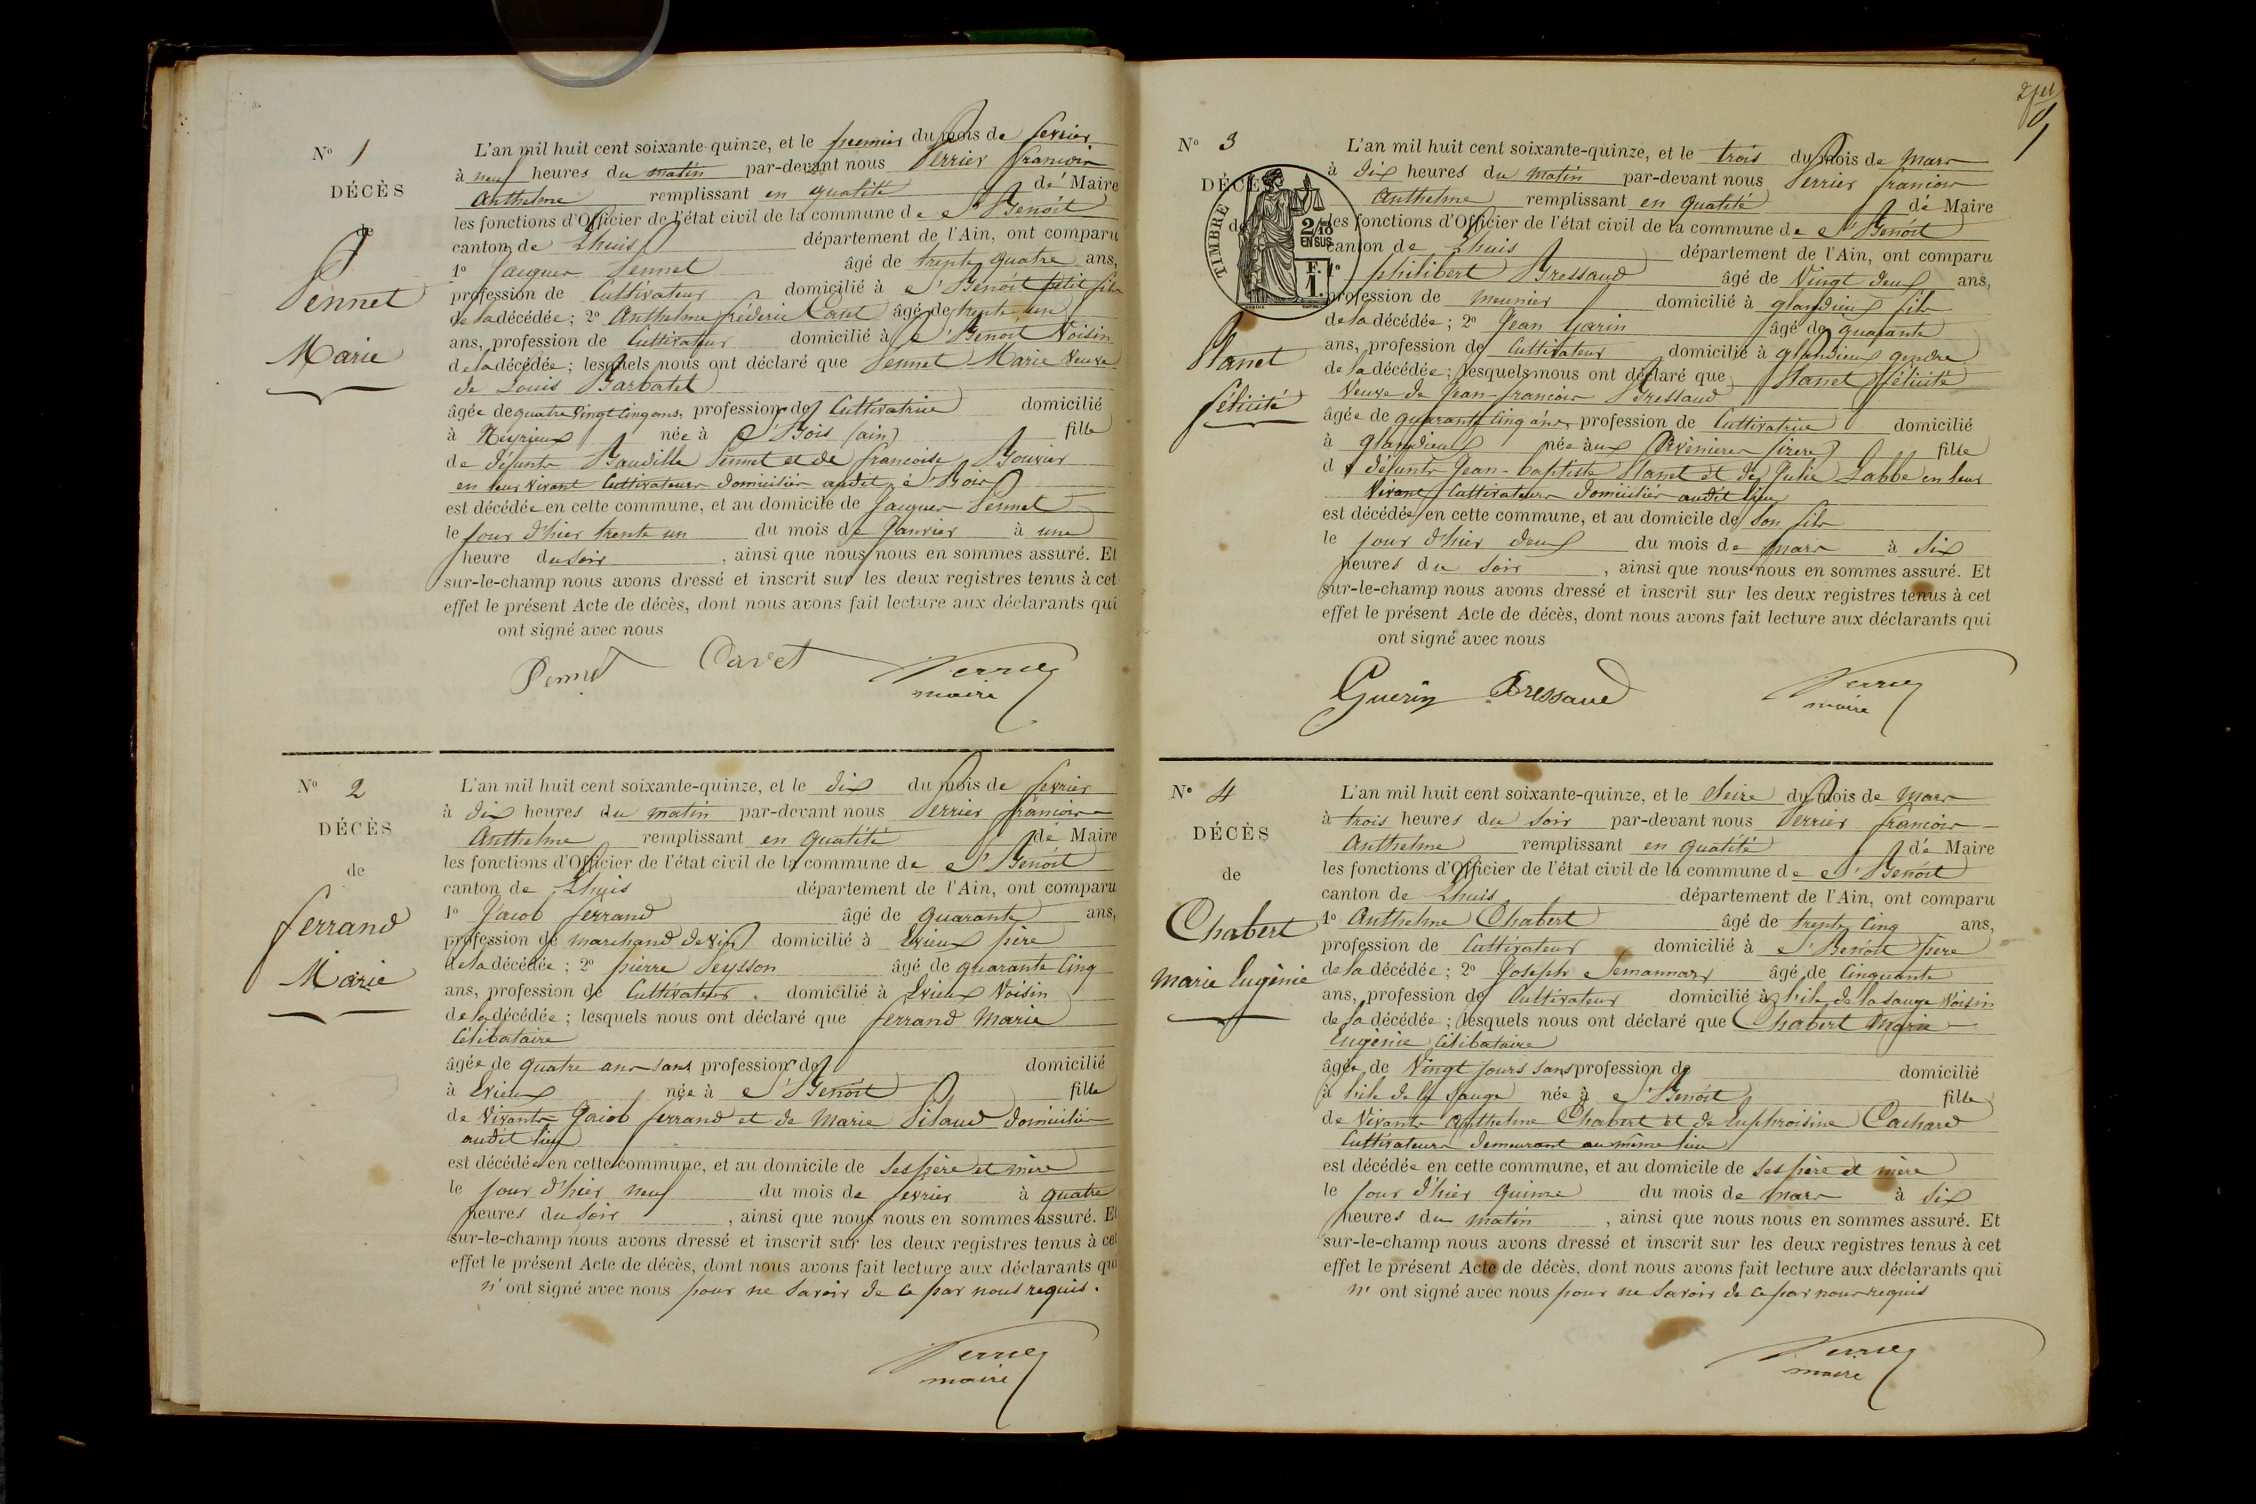 N° 1
DÉCÈS
de
Pennet
Marie
L'an mil huit cent soixante-quinze, et le premier du mois de fevrier
à neuf heures du matin par-devant nous Perrier francois
Anthelme remplissant en qualité de Maire
les fonctions d'Officier de l'état civil de la commune de St Benoit
canton de Lhuis département de l'Ain, ont comparu
1° Jacques Pennet âgé de trente quatre ans,
profession de Cultivateur domicilié à St Benoit petit fils
de la décédée; 2° Anthelme fréderic Cavet âgé de trente un
ans, profession de Cultivateur domicilié à St Benoit Voisin
de la décédée; lesquels nous ont déclaré que Pennet Marie Veuve
de Louis Barbatet
âgée de quatre vingt cinq ans, profession de Cultivatrice domicilié
à Neyrieux née à St Bois (ain) fille
de défunts Baudille Pennet et de francoise Bouvier
en leur vivant Cultivateurs domiciliés audit St Bois
est décédée en cette commune, et au domicile de Jacques Pennet
le jour d'hier trente un du mois de Janvier à une
heure du soir, ainsi que nous nous en sommes assuré. Et
sur-le-champ nous avons dressé et inscrit sur les deux registres tenus à cet
effet le présent Acte de décès, dont nous avons fait lecture aux déclarants qui
ont signé avec nous
Pennet Cavet Perrier
maire
N° 2
DÉCÈS
de
ferrand
Marie
L'an mil huit cent soixante-quinze, et le dix du mois de fevrier
à dix heures du matin par-devant nous Perrier francois
Anthelme remplissant en qualité de Maire
les fonctions d'Officier de l'état civil de la commune de St Benoit
canton de Lhuis département de l'Ain, ont comparu
1° Jacob ferrand âgé de quarante ans,
profession de marchand de vin domicilié à Evieux père
de la décédée; 2° pierre Peysson âgé de quarante cinq
ans, profession de Cultivateur domicilié à Evieux Voisin
de la décédée; lesquels nous ont déclaré que ferrand Marie
Célibataire
âgée de quatre ans sans profession de domicilié
à Evieux née à St Benoit fille
de Vivants Jacob ferrand et de Marie Pilaud domiciliés
audit lieu
est décédée en cette commune, et au domicile de ses père et mère
le jour d'hier neuf du mois de fevrier à quatre
heures du soir, ainsi que nous nous en sommes assuré. Et
sur-le-champ nous avons dressé et inscrit sur les deux registres tenus à cet
effet le présent Acte de décès, dont nous avons fait lecture aux déclarants qui
n'ont signé avec nous pour ne savoir de ce par nous requis.
Perrier
maire
1
N° 3
DÉCÈS
de
TIMBRE
2/10
EN SUS
F.
1.
Planet
félicité
L'an mil huit cent soixante-quinze, et le trois du mois de mars
à dix heures du matin par-devant nous Perrier francois
Anthelme remplissant en qualité de Maire
les fonctions d'Officier de l'état civil de la commune de St Benoit
canton de Lhuis département de l'Ain, ont comparu
1° philibert Bressaud âgé de Vingt deux ans,
profession de meunier domicilié à glandieux fils
de la décédée; 2° Jean Garin âgé de quarante
ans, profession de Cultivateur domicilié à glandieux gendre
de la décédée; lesquels nous ont déclaré que Planet félicité
Veuve de Jean-francois Bressaud
âgée de quarante cinq ans profession de Cultivatrice domicilié
à glandieux née aux Avenieres (isere) fille
de défunts Jean-baptiste Planet et de Julie Labbe en leur
Vivant Cultivateurs domiciliés audit lieu
est décédée en cette commune, et au domicile de son fils
le jour d'hier deux du mois de mars à six
heures du soir, ainsi que nous nous en sommes assuré. Et
sur-le-champ nous avons dressé et inscrit sur les deux registres tenus à cet
effet le présent Acte de décès, dont nous avons fait lecture aux déclarants qui
ont signé avec nous
Guerin Bressaud Perrier
maire
N° 4
DÉCÈS
de
Chabert
Marie Eugènie
L'an mil huit cent soixante-quinze, et le Seize du mois de Mars
à trois heures du soir par-devant nous Perrier francois
Anthelme remplissant en qualité de Maire
les fonctions d'Officier de l'état civil de la commune de St Benoit
canton de Lhuis département de l'Ain, ont comparu
1° Anthelme Chabert âgé de trente cinq ans,
profession de Cultivateur domicilié à St Benoit père
de la décédée; 2° Joseph âgé de Cinquante
ans, profession de Cultivateur domicilié à de la sauge Voisin
de la décédée; lesquels nous ont déclaré que Chabert Marie
Eugènie Célibataire
âgée de Vingt jours sans profession de domicilié
à de la Sauge née à St Benoit fille
de Vivants Anthelme Chabert et de Euphroisine Cachard
Cultivateurs demeurant au même lieu
est décédée en cette commune, et au domicile de ses père et mère
le jour d'hier quinze du mois de mars à six
heures du matin, ainsi que nous nous en sommes assuré. Et
sur-le-champ nous avons dressé et inscrit sur les deux registres tenus à cet
effet le présent Acte de décès, dont nous avons fait lecture aux déclarants qui
n'ont signé avec nous pour ne savoir de ce par nous requis
Perrier
maire